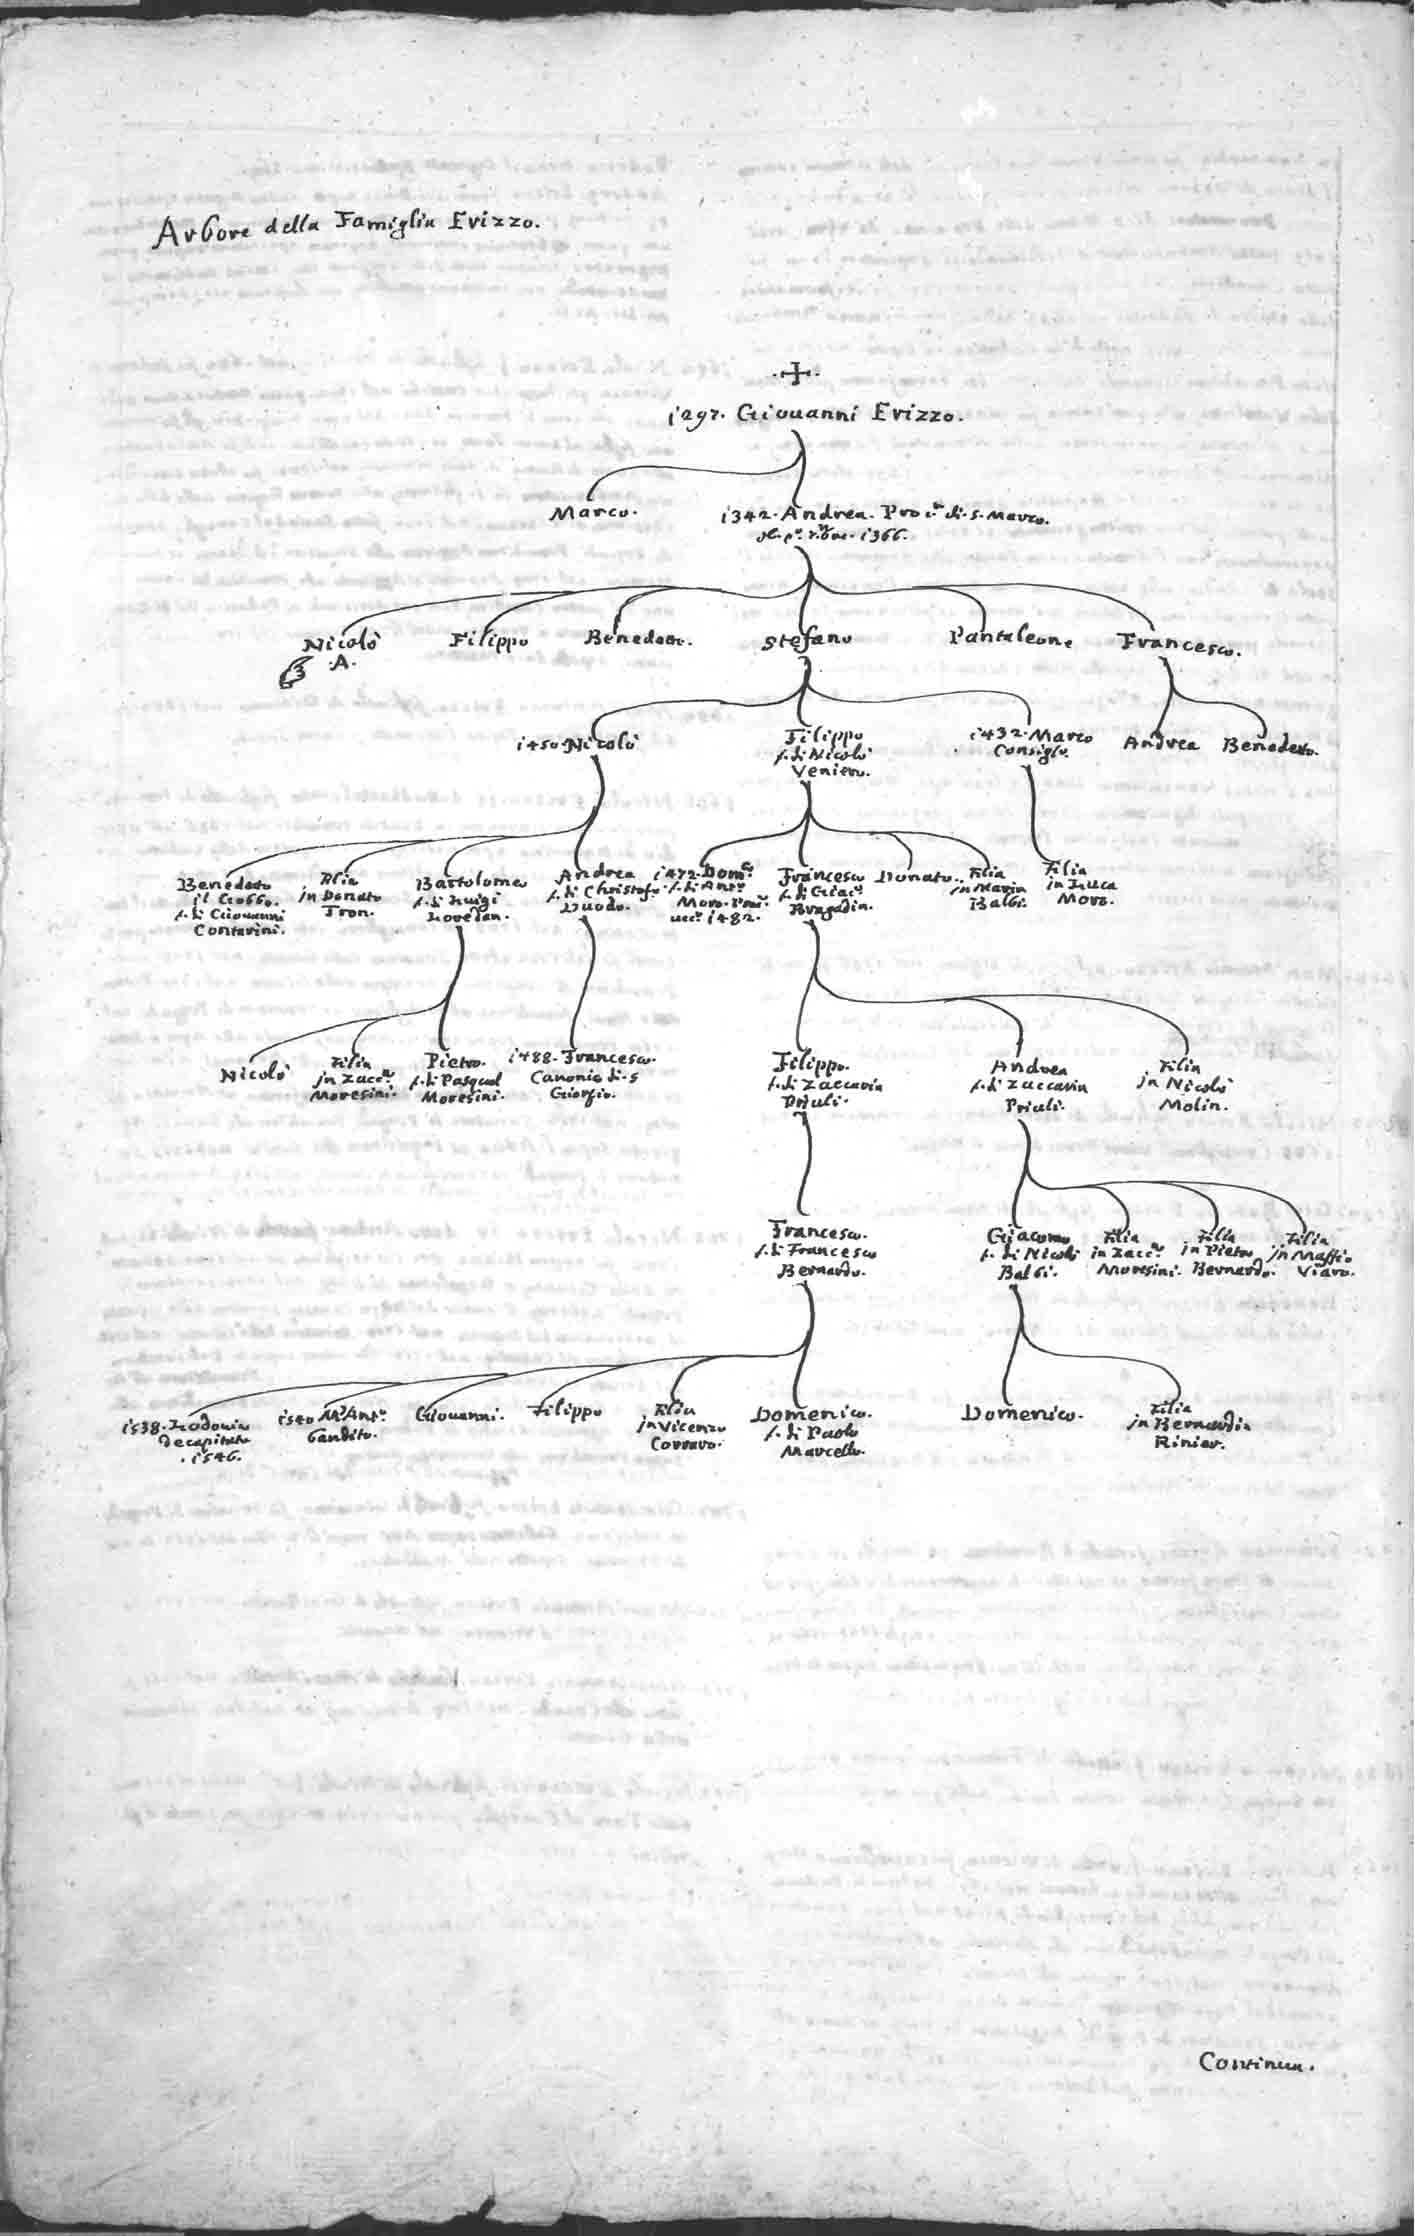 Arbore della Famiglia Erizzo.
1297. Giouanni Erizzo.
Marco.
1342. Andrea. Proc.r di. S. Marco.
1366.
Nicolò
A.
Filippo
Benedetto.
Stefano
Pantaleone
Francesco.
1450. Nicolò
Filippo
f. di Nicolò
Veniero.
1432. Marco
Consigl.
Andrea
Benedetto.
Benedetto
il Gobbo.
f. di Giouanni
Contarini.
Filia
in Donato
Tron.
Bartolomeo
f. di Luigi
Loredan.
Andrea
f. di Christofo.
Duodo.
1472. Dom.co
f. di Ant.o
Moro. Pou.r
ucc.o 1482.
Francesco
f. di Giac.o
Bragadin.
Donato.
Filia
in Marin
Balbi.
Filia
in Luca
Moro.
Nicolò
Filia
jn Zacc.a
Moresini.
Pietro.
f. di Pasqual
Moresini.
1488. Francesco.
Canonic di. S
Giorgio.
Filippo.
f. di Zaccaria
Priuli.
Andrea
f. di Zaccaria
Priuli.
Filia
jn Nicolò
Molin.
Francesco.
f. di Francesco
Bernardo.
Giacomo
f. di Nicolò
Balbi.
Filia
in Zacc.a
Moresini.
Filia
in Pietro
Bernardo.
Filia
jn Maffio
Viaro.
1538. Lodouico
decapitato
. 1546.
1540 M. Ant.o
bandito.
Giouanni.
Filippo
Filia
jn Vicenzo
Corraro.
Domenico.
f. di Paolo
Marcello.
Domenico.
Filia
jn Bernardin
Rinier.
Continua.